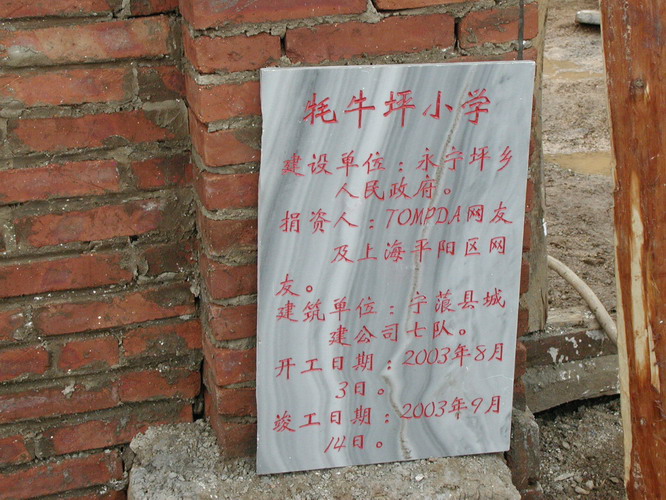 牦牛坪小学
建设单位：永宁坪乡
人民政府。
捐资人：TOMPDA网友
及上海平阳区网
友。
建筑单位：宁蒗县城
建公司七队。
开工日期：2003年8月
3日。
竣工日期：2003年9月
14日。